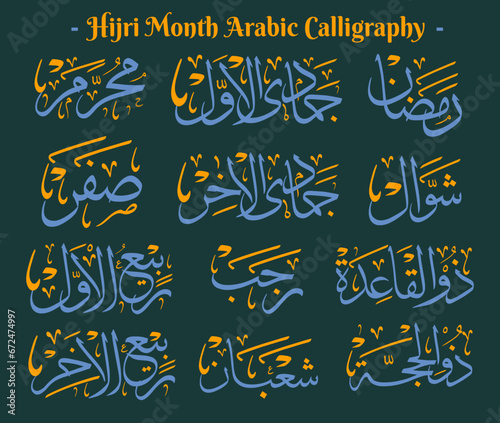 - Hijri Month Arabic Calligraphy -
مُحَرَّم
جَمَادَى الْأَوَّل
رَمَضَان
صَفَر
جَمَادَى الْأَخِر
شَوَّال
رَبِيعُ الْأَوَّل
رَجَب
ذُو الْقَاعِدَة
رَبِيعُ الْأَخِر
شَعْبَان
ذُو الْحِجَّة
Adobe Stock | #672474997